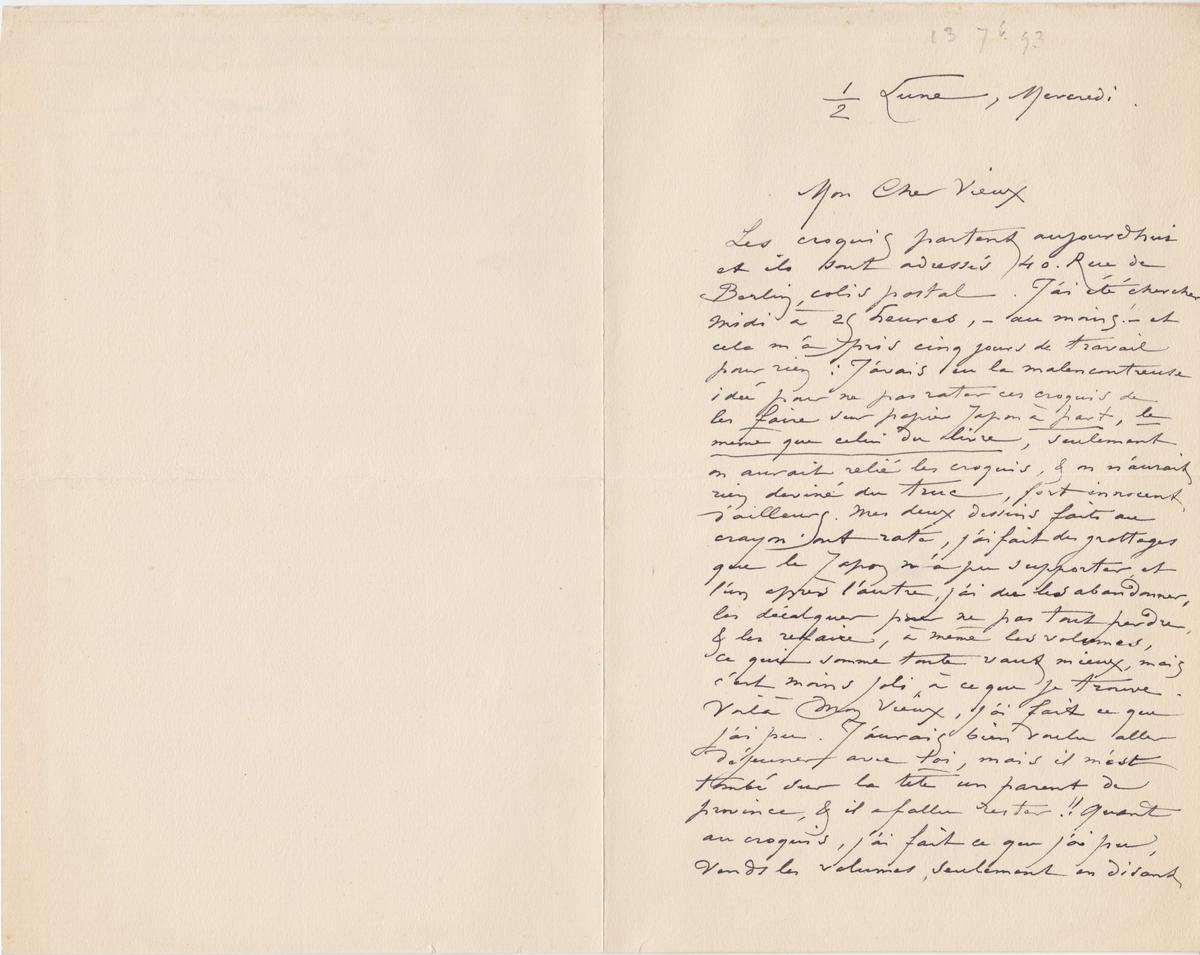 13 7b 93
1/2 Lune, Mercredi.
Mon Cher Vieux
Les croquis partent aujourd'hui
et ils sont adressés 40. Rue de
Berlin, colis postal. J'ai été chercher
midi à 25 heures, - au moins! - et
cela m'a pris cinq jours de travail
pour rien : J'avais eu la malencontreuse
idée pour ne pas rater ces croquis de
les faire sur papier Japon à part, le
même que celui du livre, seulement
on aurait relié les croquis, & on n'aurait
rien deviné du truc, fort innocent,
d'ailleurs. Mes deux dessins faits au
crayon ont raté, j'ai fait des grattages
que le Japon n'a pu supporter, et
l'un après l'autre, j'ai du les abandonner,
les décalquer pour ne pas tout perdre,
& les refaire, à même les volumes,
ce qui somme toute vaut mieux, mais
c'est moins joli, à ce que je trouve.
Voilà mon Vieux, j'ai fait ce que
j'ai pu. J'aurais bien voulu aller
déjeuner avec toi, mais il m'est
tombé sur la tête un parent de
province, & il a fallu rester !! Quant
au croquis, j'ai fait ce que j'ai pu,
vends les volumes, seulement en disant